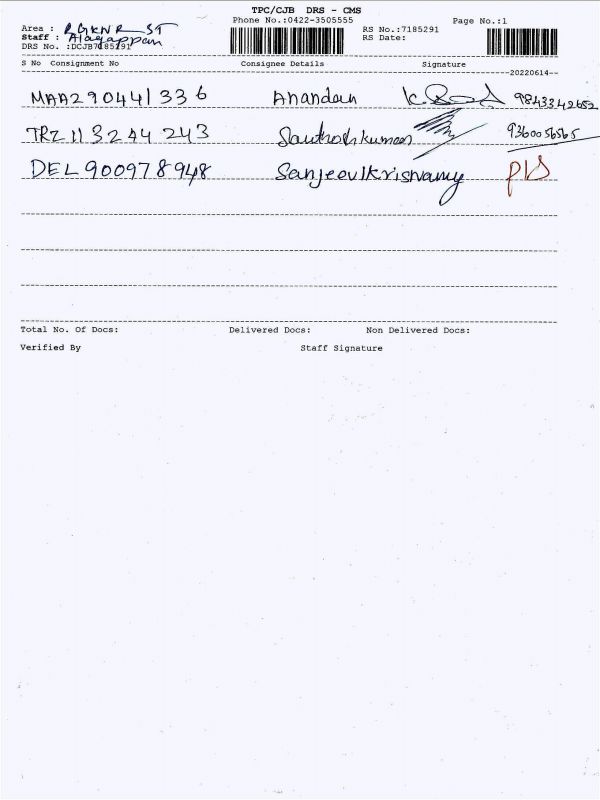 TPC/CJB DRS - CMS
Phone No.:0422-3505555 Page No.:1
Area : RGKNR ST
RS No.:7185291
Staff : Alagappan
RS Date:
DRS No. :DCJB7185291
S No Consignment No Consignee Details Signature
--20220614--
MAA290441336 Anandan 9843342652
TRZ113244243 Santhoshkumar 9360056565
DEL900978948 Sanjeevikrisnamy
Total No. Of Docs: Delivered Docs: Non Delivered Docs:
Verified By Staff Signature